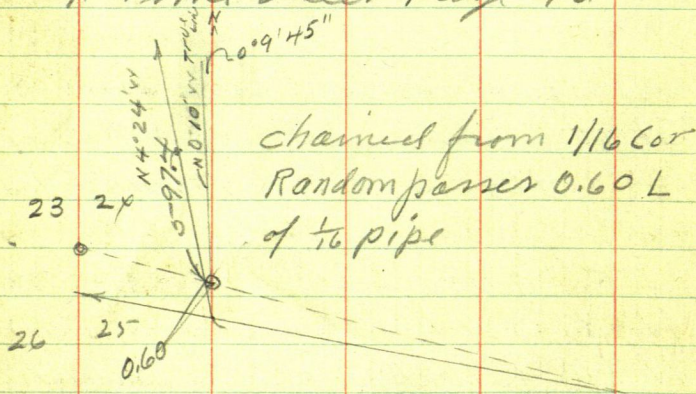 0°9'45"
N 4°24' W
N 0°10' W True
5-967
chained from 1/16 Cor
Random passes 0.60 L
of 1/16 pipe
23 24
26 25
0.60